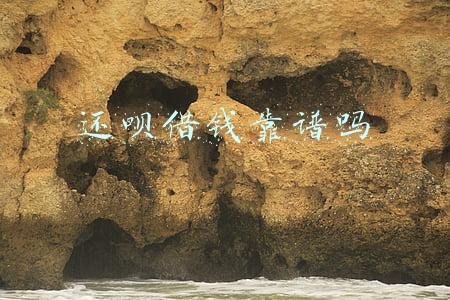 还呗借钱靠谱吗